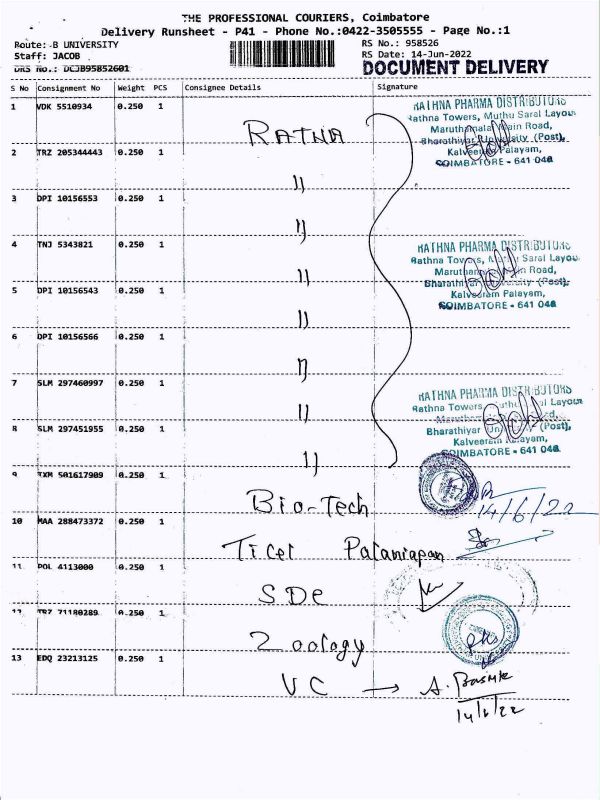 THE PROFESSIONAL COURIERS, Coimbatore
Delivery Runsheet - P41 - Phone No.:0422-3505555 - Page No.:1
Route: B UNIVERSITY
RS No.: 958526
Staff: JACOB
RS Date: 14-Jun-2022
DRS No.: DCJB95852601
DOCUMENT DELIVERY
S No Consignment No Weight PCS Consignee Details Signature
1 VDK 5510934 0.250 1
RATNA
RATHNA PHARMA DISTRIBUTORS
Rathna Towers, Muthu Saral Layout
Maruthamalai Main Road,
Bharathiyar University (Post),
Kalveeram Palayam,
COIMBATORE - 641 046
2 TRZ 205344443 0.250 1
"
3 DPI 10156553 0.250 1
"
4 TNJ 5343821 0.250 1
"
RATHNA PHARMA DISTRIBUTORS
Rathna Towers, Muthu Saral Layout
Maruthamalai Main Road,
Bharathiyar University (Post),
Kalveeram Palayam,
COIMBATORE - 641 046
5 DPI 10156543 0.250 1
"
6 DPI 10156566 0.250 1
"
7 SLM 297460997 0.250 1
"
RATHNA PHARMA DISTRIBUTORS
Rathna Towers, Muthu Saral Layout
Bharathiyar University (Post),
Kalveeram Palayam,
COIMBATORE - 641 046
8 SLM 297451955 0.250 1
"
9 TXM 501617909 0.250 1
Bio-Tech
14/6/22
10 MAA 288473372 0.250 1
Ticel Palaniapan
11 POL 4113000 0.250 1
SDE
12 TRZ 71180289 0.250 1
Zoology
13 EDQ 23213125 0.250 1
VC → A.
14/6/22